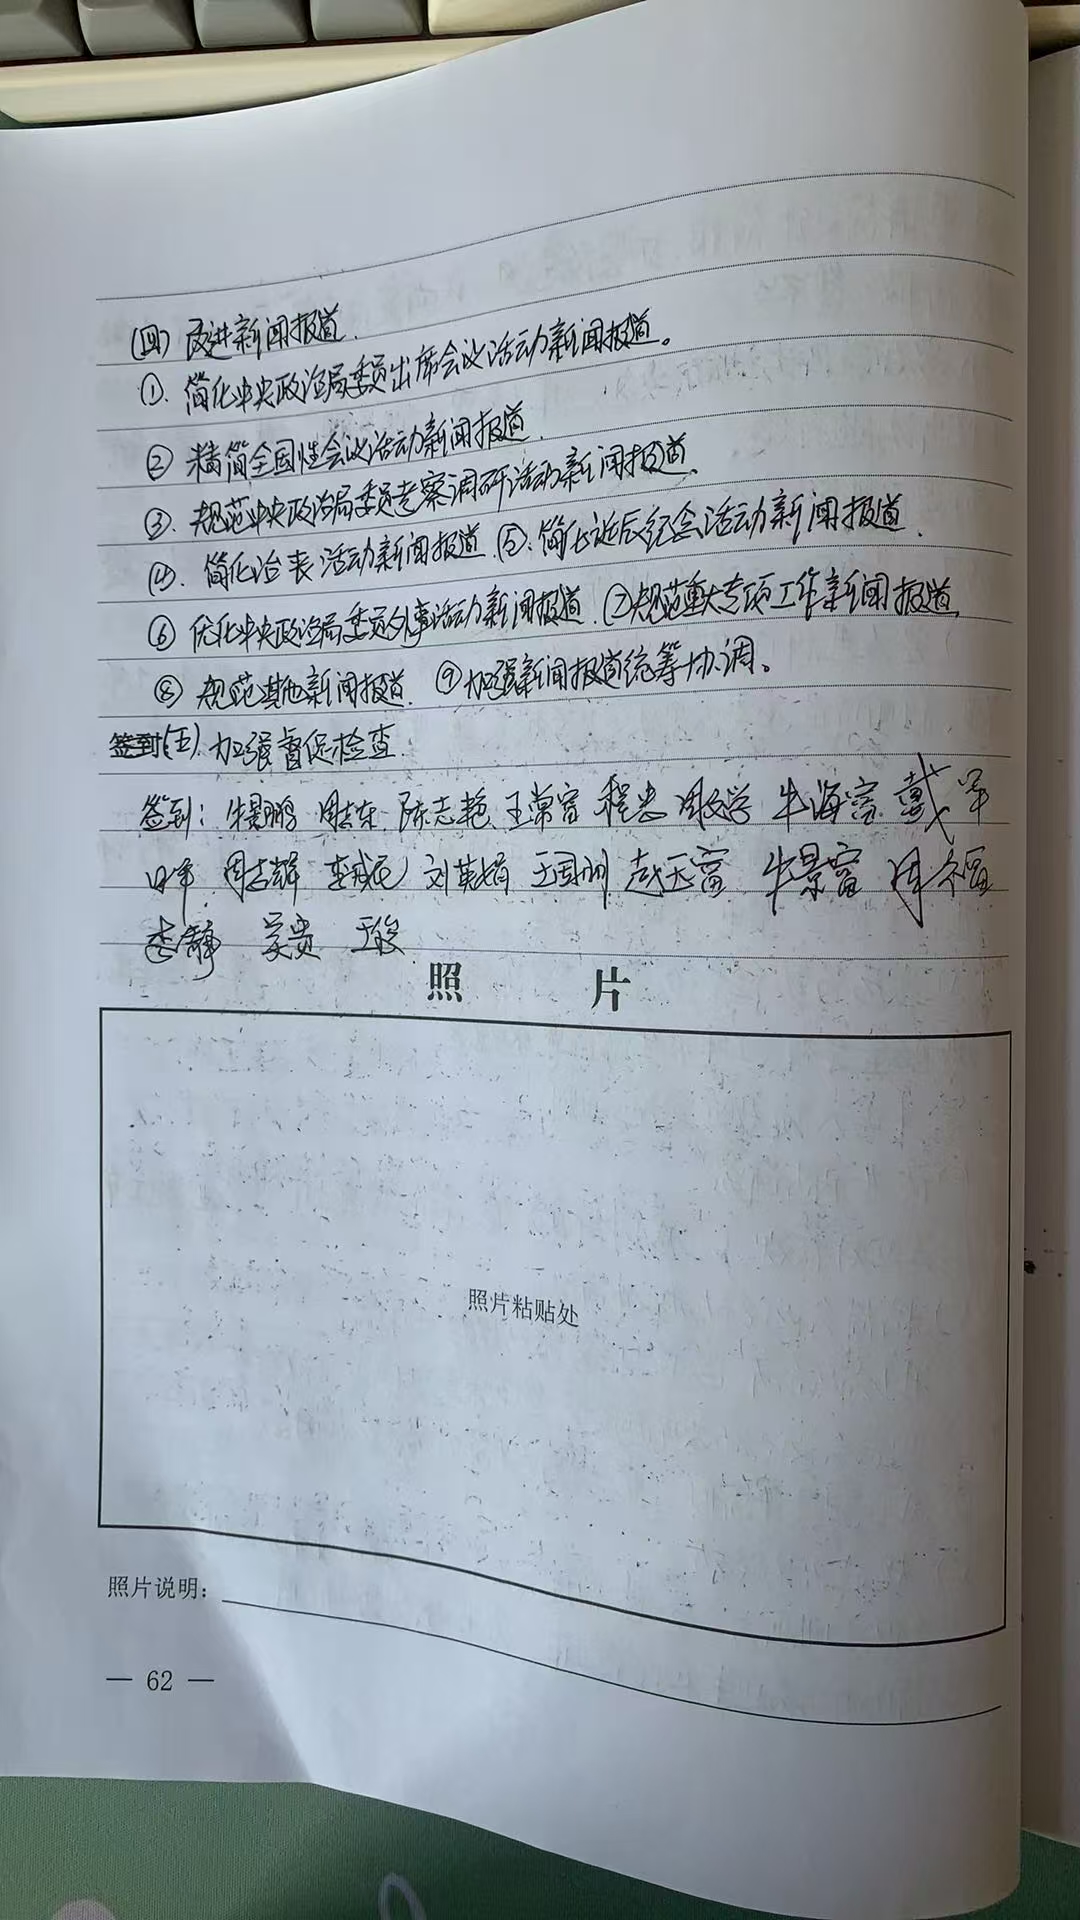 (四) 改进新闻报道.
①. 简化中央政治局委员出席会议活动新闻报道。
② 精简全国性会议活动新闻报道.
③. 规范中央政治局委员考察调研活动新闻报道.
④. 简化治丧活动新闻报道. ⑤. 简化诞辰纪念活动新闻报道.
⑥ 优化中央政治局委员外事活动新闻报道. ⑦规范重大专项工作新闻报道.
⑧ 规范其他新闻报道. ⑨加强新闻报道统筹协调。
签到(五). 加强督促检查.
签到: 牛景鹏 周志东 陈志艳 王常富 程忠 周文学 牛海富 戴军
周志辉 刘英娟 王国州 赵玉富 牛景富 周福
李静 吴贵 王俊
照 片
照片粘贴处
照片说明:
— 62 —